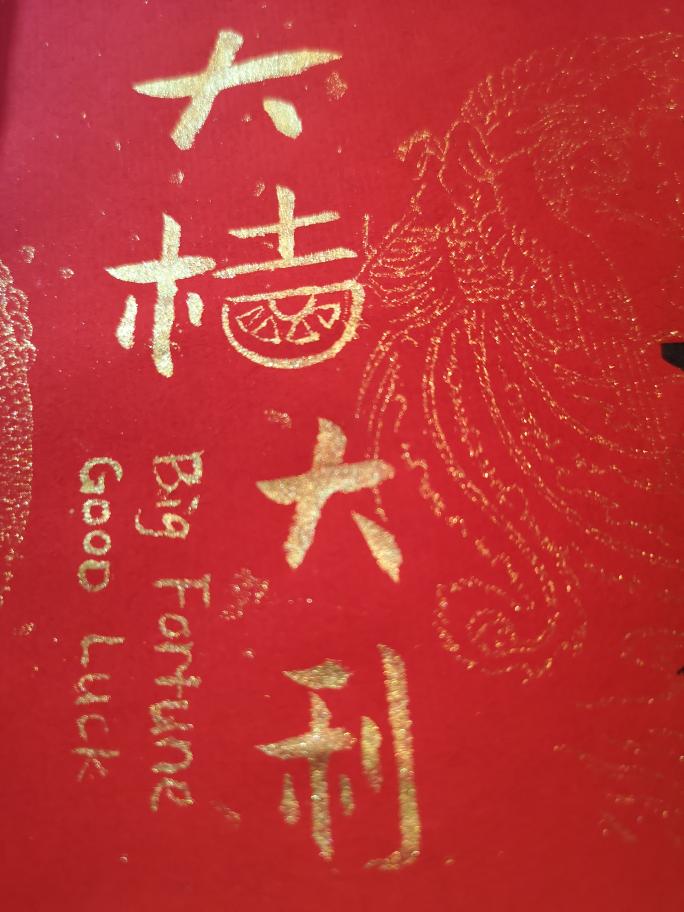 大桔大利
Big Fortune
Good Luck